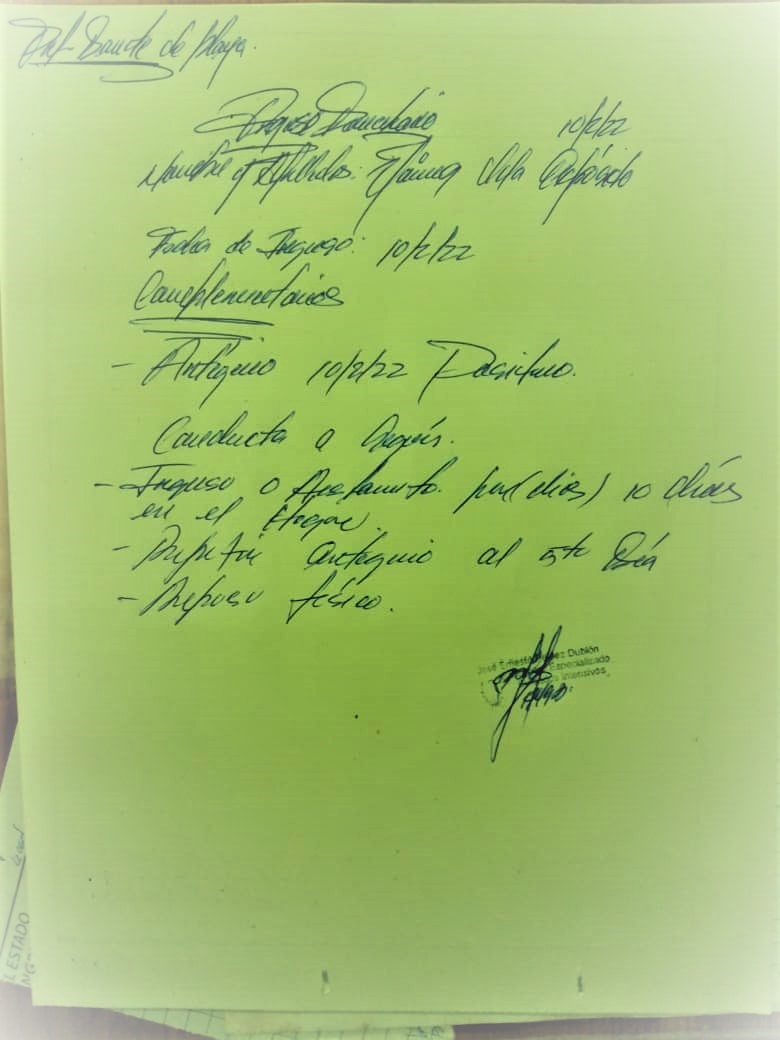 de Playa.
Ingreso Domiciliario 10/2/22
Nombre y Apellidos: Expósito
Fecha de Ingreso: 10/2/22
Complementarios
- Antígeno 10/2/22 Positivo.
Conducta a Seguir.
- Ingreso o Aislamiento. por (dias) 10 días
en el Hogar.
- Repetir antígeno al 5to Día
- Reposo físico.
José Ernesto Dublón
Especializado
Intensivos
L ESTADO